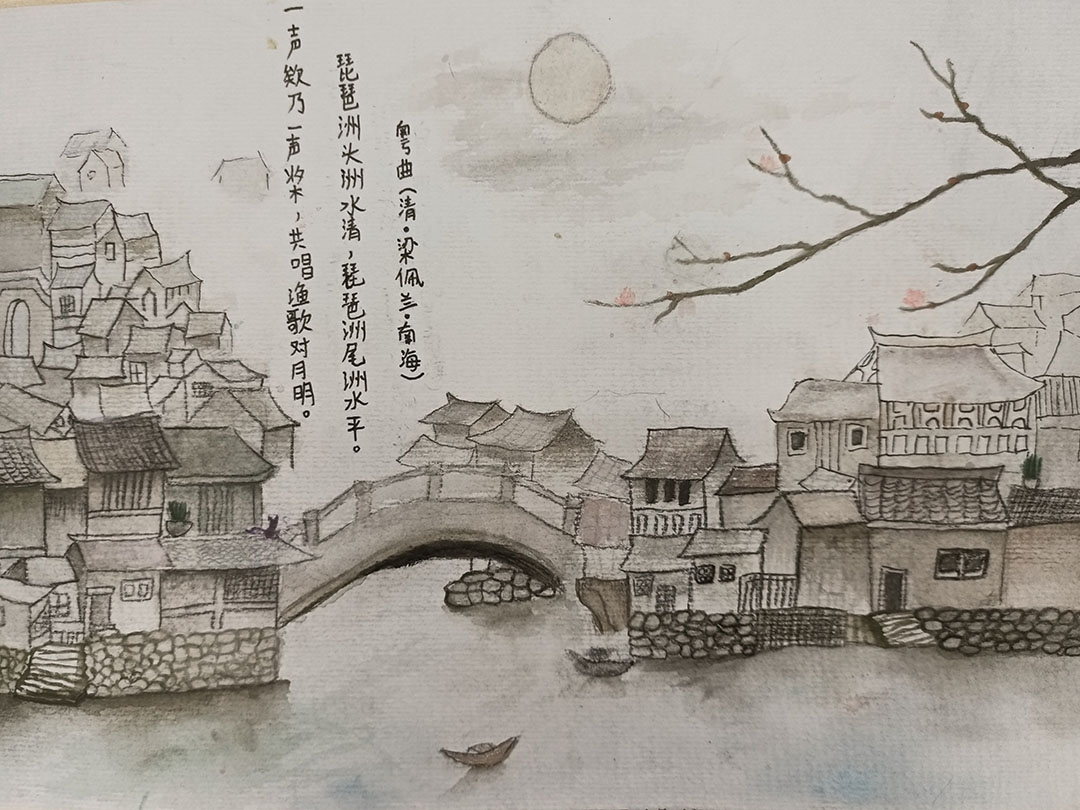 粤曲(清·梁佩兰·南海)
琵琶洲头洲水清，琵琶洲尾洲水平。
一声欸乃一声桨，共唱渔歌对月明。